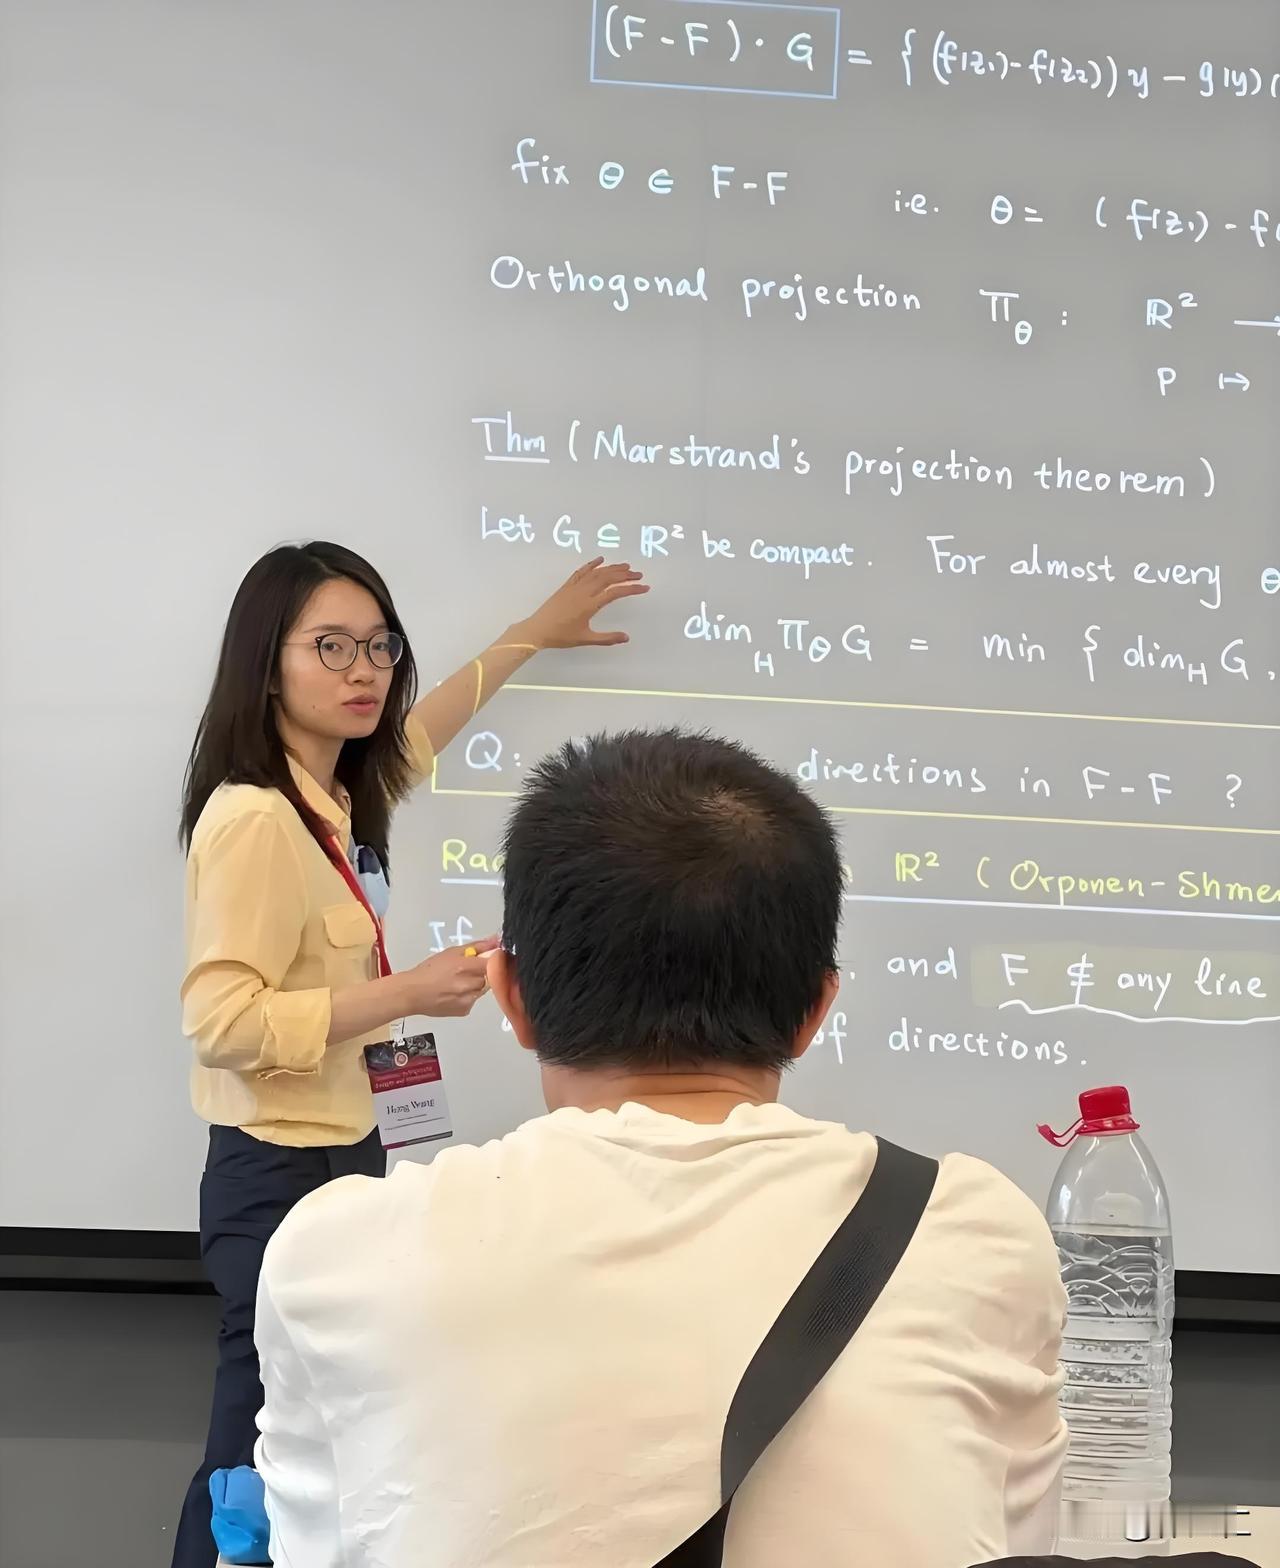 (F-F)·G = { (f(z₁)-f(z₂)) y - g(y) (
fix θ ∈ F-F i.e. θ = ( f(z₁) - f(
Orthogonal projection π_θ : ℝ² →
p ↦
Thm (Marstrand's projection theorem)
Let G ⊆ ℝ² be compact. For almost every θ
dim_H π_θ G = min { dim_H G,
Q: directions in F-F ?
ℝ² ( Orponen-Shme
If , and F ⊈ any line
of directions.
Hong Wang